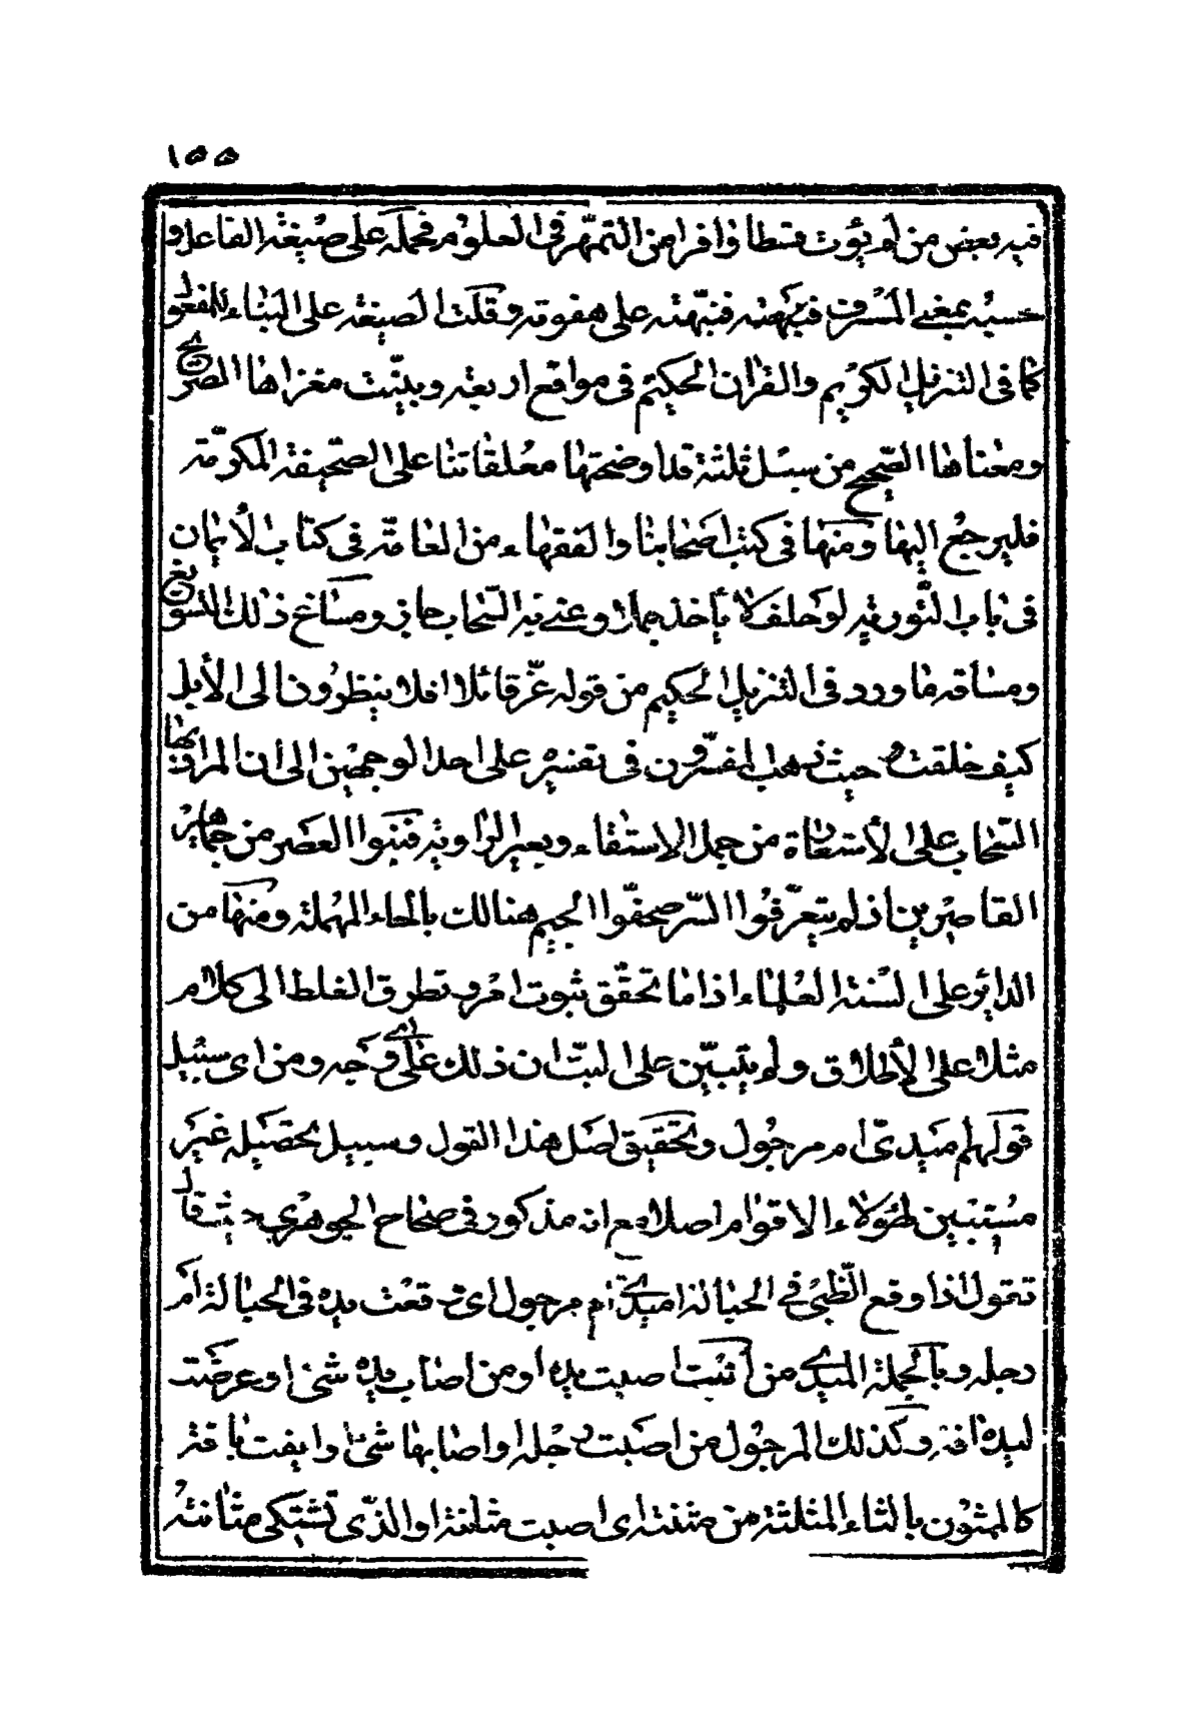 ١٥٥
فيه بعض من لم يؤت قسطا وافرا من التمهّر في العلوم فحمله على صيغة الفاعل و
حسبه بمعنى المسرف فبكّته فنبّهته على هفوته وقلت الصيغة على البناء للمفعول
كما في التنزيل الكريم والقران الحكيم في مواقع اربعة وبيّنت مغزاها الصريح
ومعناها الصّحيح من سبل ثلثة قد اوضحتها معلقاتنا على الصّحيفة المكرّمة
فليرجع اليها ومنها في كتب اصحابنا والفقهاء من العامّة في كتاب الأيمان
في باب التّورية لو حلف لا يأخذ جملا وعنى به السّحاب جاز ومساغ ذلك التسويغ
ومساقه ما ورد في التنزيل الحكيم من قوله عزّ قائلا افلا ينظرون الى الأبل
كيف خلقت حيث ذهب المفسّرون في تفسيره على احد الوجهين الى ان المراد بها
السّحاب على الأستعارة من جمل الاستقاء وبعير الراوية فنبوا العصر من جماهير
القاصرين اذ لم يتعرّفوا السّر صحفّوا الجيم هنالك بالحاء المهملة ومنها من
الداير على السنة العلماء اذا ما تحقّق ثبوت امر و تطرق الغلط الى كلام
مثلا على الأطلاق ولم يتبيّن على البتّ ان ذلك على اى وجه ومن اى سبيل
قولهم ميدىّ ام مرجول وتحقيق اصل هذا القول وسبيل تحصيله غير
مستبين لهؤلاء الاقوام اصلا مع انه مذكور في صحاح الجوهري حيث قال
تقول اذا وقع الظّبى في الحبالة اميدىّ ام مرجول اى وقعت يده في الحبالة ام
رجله وبالجملة الميدى من اثبت اصيبت يده او من اصاب يده شئ او عرضت
ليده افة وكذلك المرجول من اصيبت رجله او اصابها شئ او ايفت بافة
كالمثون بالثاء المثلثة من مثنته اى اصبت مثانته او الذّى تشتكى مثانته